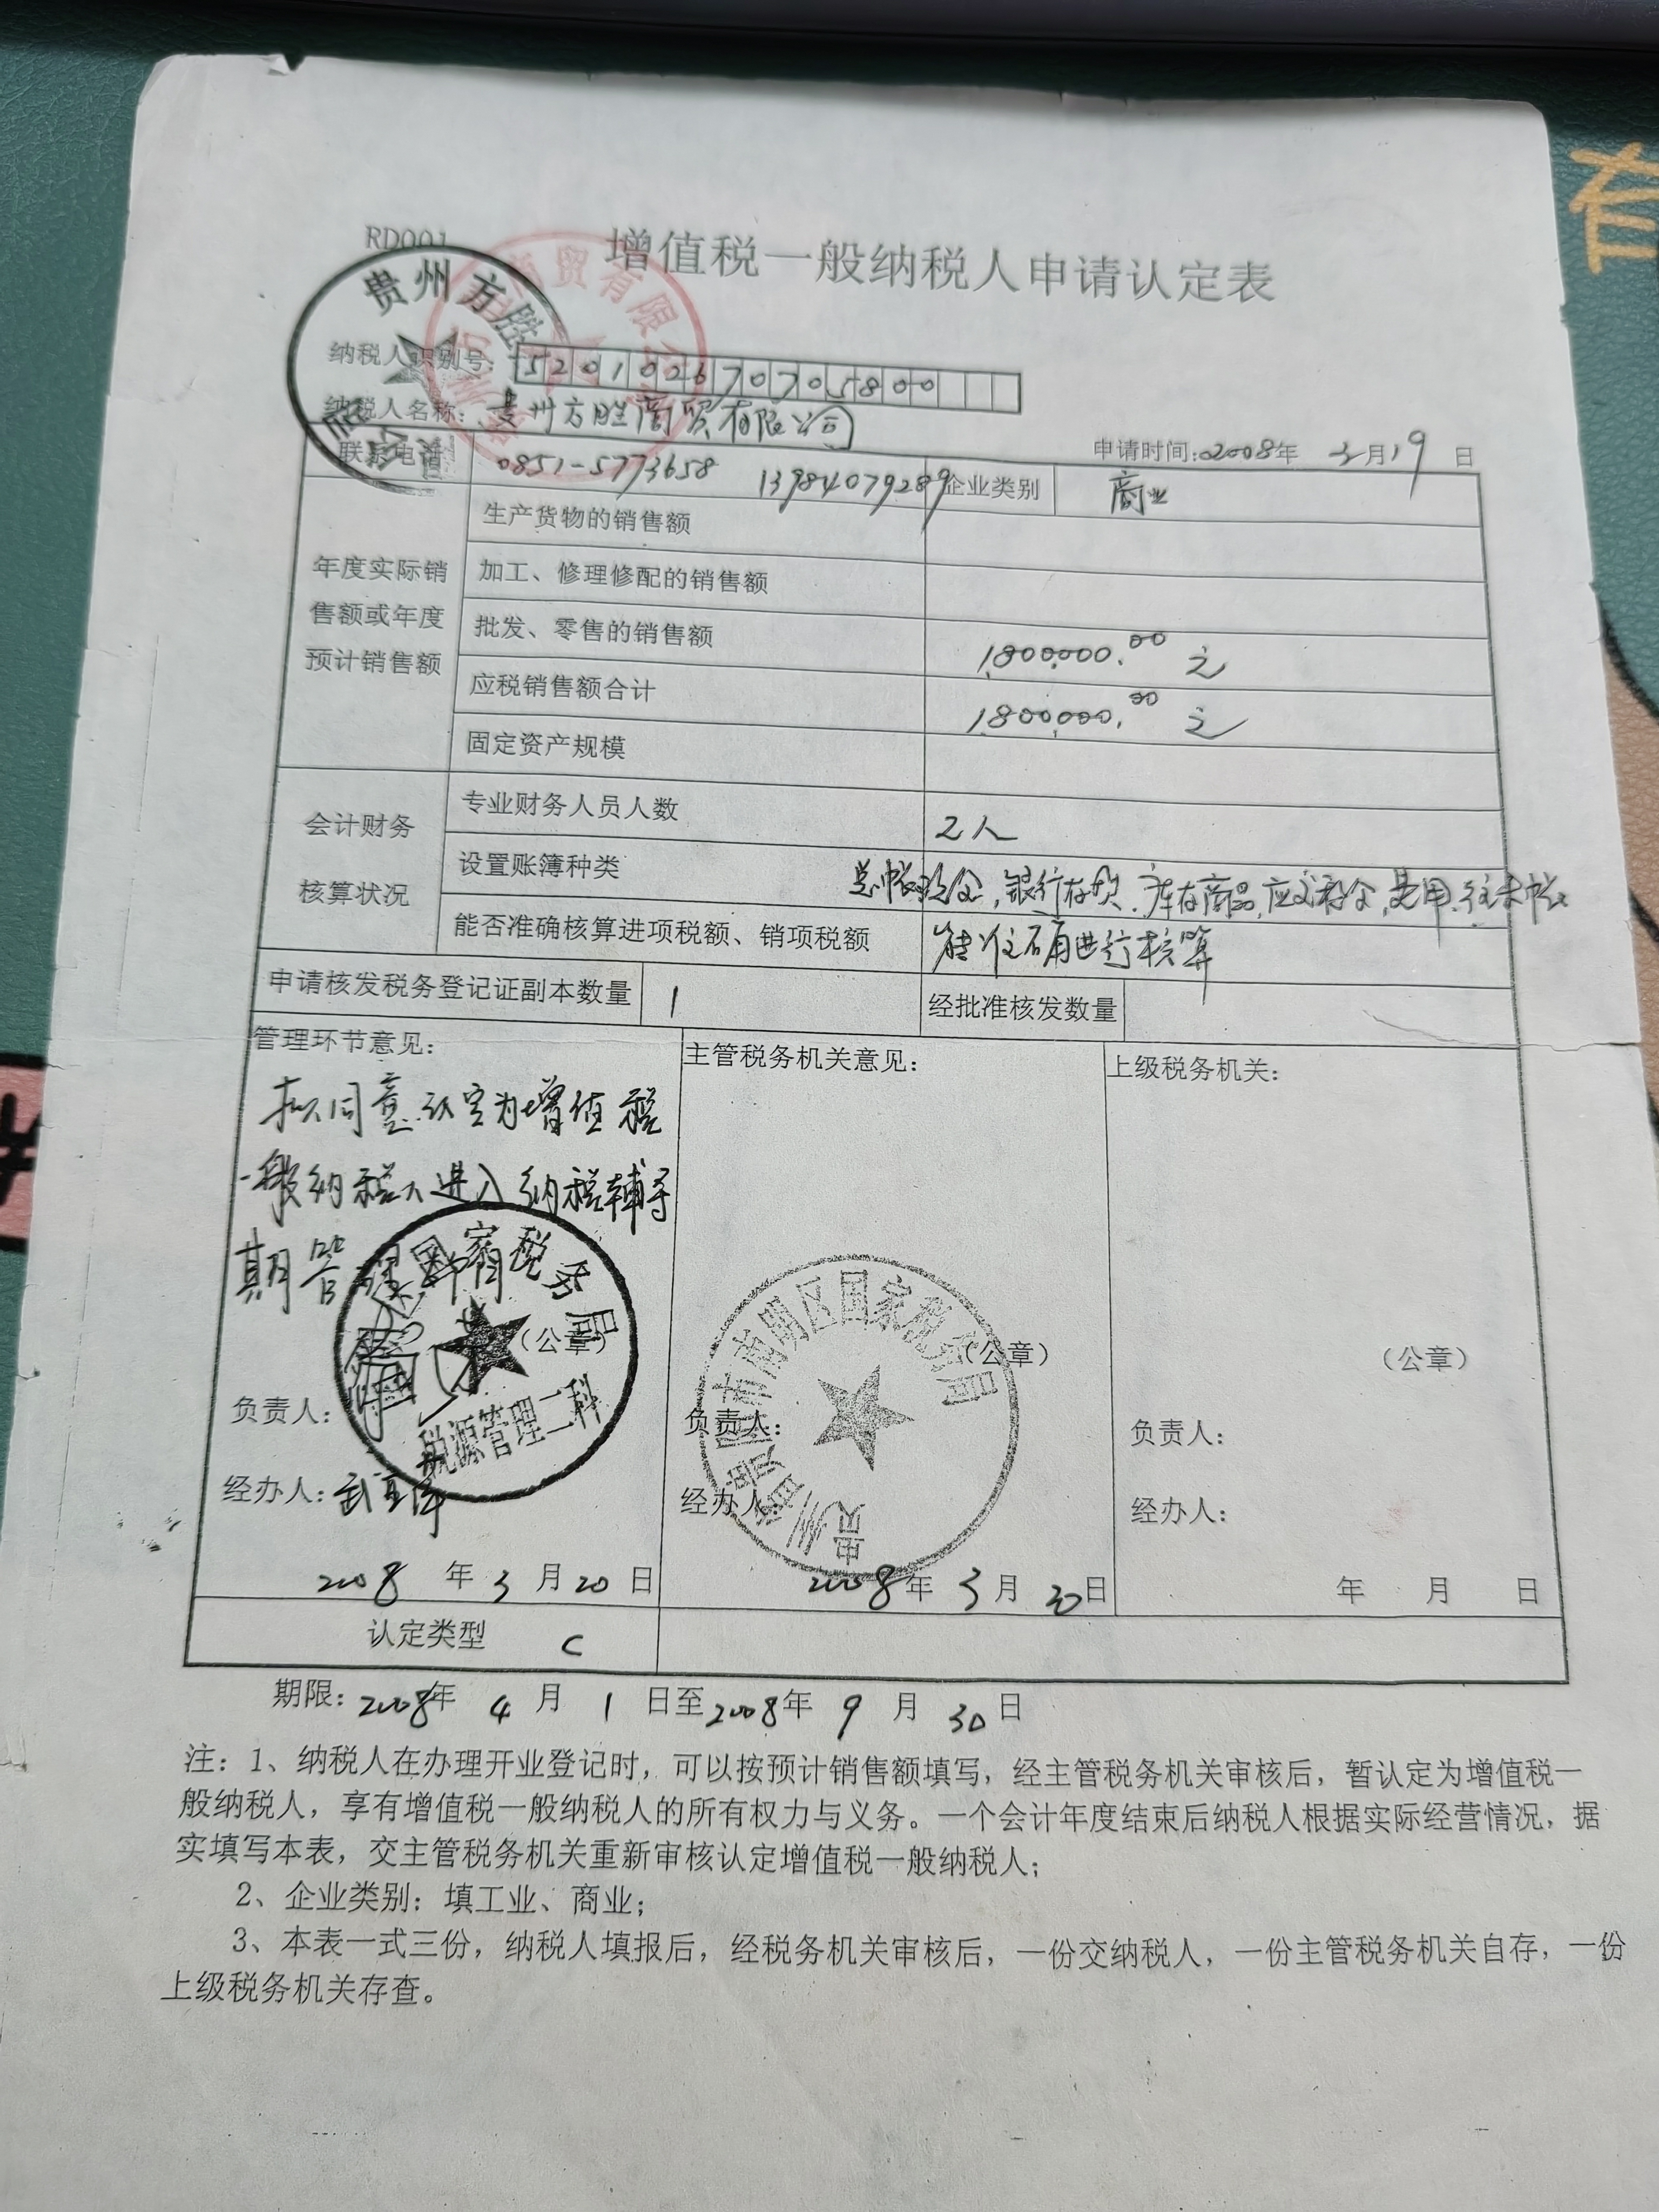 RD001
增值税一般纳税人申请认定表
贵州方胜
贸有限
纳税人识别号: 520102670705800
纳税人名称: 贵州方胜商贸有限公司
申请时间:2008年 3月19日
联系电话 0851-5773658 13984079289 企业类别 商业
年度实际销售额或年度预计销售额
生产货物的销售额
加工、修理修配的销售额
批发、零售的销售额 1,800,000.00 元
应税销售额合计 1,800,000.00 元
固定资产规模
会计财务核算状况
专业财务人员人数 2人
设置账簿种类 总帐,现金,银行存款、库存商品,应交税金,费用、往来帐
能否准确核算进项税额、销项税额 能准确进行核算
申请核发税务登记证副本数量 1 经批准核发数量
管理环节意见:
拟同意认定为增值税
一般纳税人进入纳税辅导
期管理
国家税务局
税源管理二科
(公章)
负责人:
经办人:
2008 年 3 月 20 日
主管税务机关意见:
贵州省贵阳市南明区国家税务局
(公章)
负责人:
经办人:
2008年 3 月 20日
上级税务机关:
(公章)
负责人:
经办人:
年 月 日
认定类型 C
期限: 2008年 4 月 1 日至2008年 9 月 30 日
注: 1、纳税人在办理开业登记时，可以按预计销售额填写，经主管税务机关审核后，暂认定为增值税一
般纳税人，享有增值税一般纳税人的所有权力与义务。一个会计年度结束后纳税人根据实际经营情况，据
实填写本表，交主管税务机关重新审核认定增值税一般纳税人;
2、企业类别: 填工业、商业;
3、本表一式三份，纳税人填报后，经税务机关审核后，一份交纳税人，一份主管税务机关自存，一份
上级税务机关存查。
有